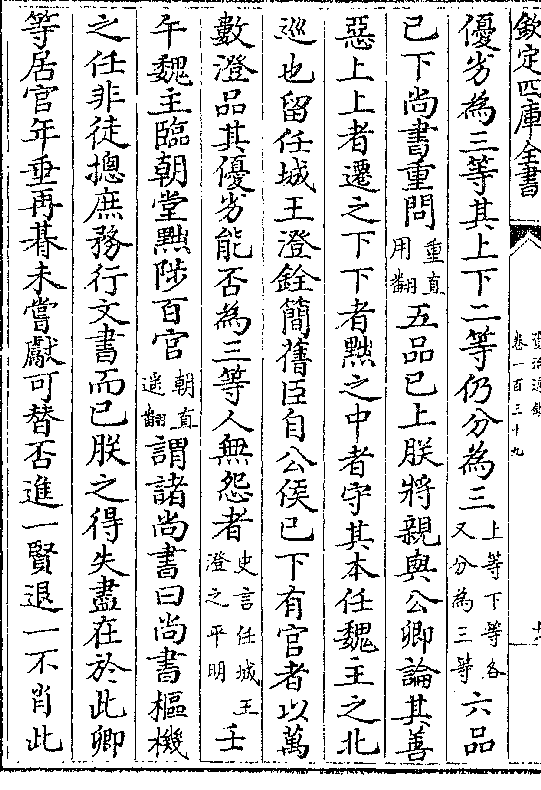 欽定四庫全書
資治通鑑
卷一百三十九
優劣為三等其上下二等仍分為三上等下等各又分為三等六品
已下尚書重問重直用翻五品已上朕將親與公卿論其善
惡上上者遷之下下者黜之中者守其本任魏主之北
巡也留任城王澄銓簡舊臣自公侯已下有官者以萬
數澄品其優劣能否為三等人無怨者史言任城王澄之平明壬
午魏主臨朝堂黜陟百官朝直遥翻謂諸尚書曰尚書樞機
之任非徒摠庶務行文書而已朕之得失盡在於此卿
等居官年垂再朞未嘗獻可替否進一賢退一不肖此